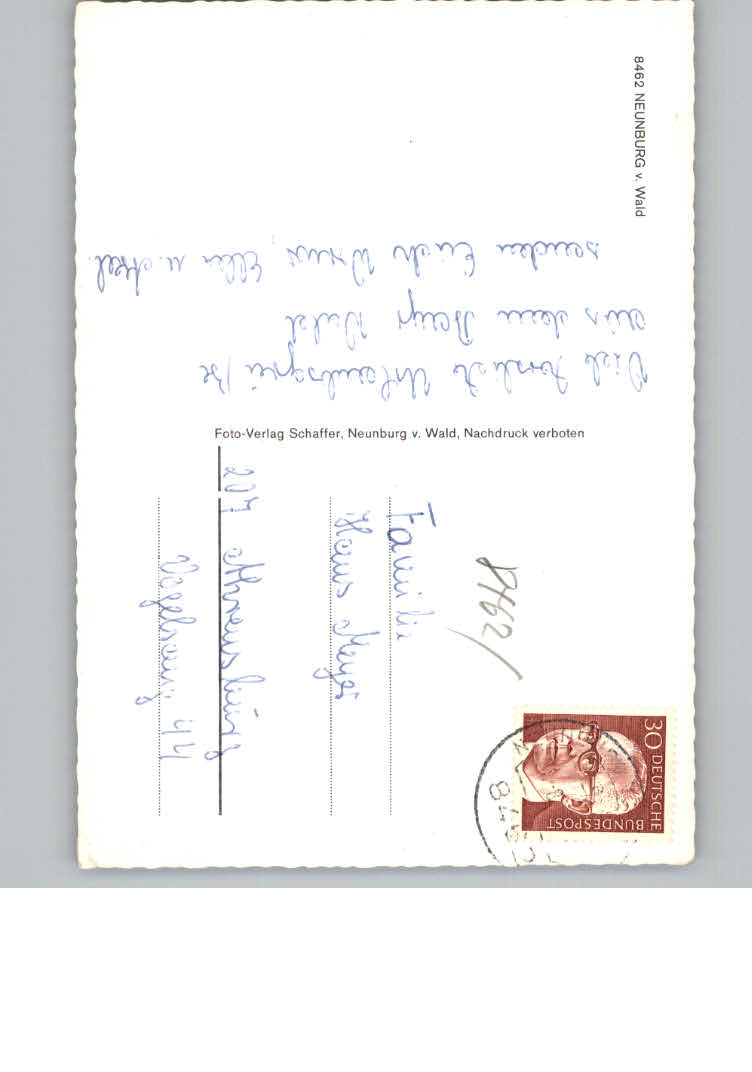 8462 NEUNBURG v. Wald
Viele herzliche Urlaubsgrüße
aus dem Bayr. Wald
senden Euch Ellen u. Axel.
Foto-Verlag Schaffer, Neunburg v. Wald, Nachdruck verboten
Familie
Hans Meyer
207 Ahrensburg
Vogelsang 44
8462/
30 DEUTSCHE
BUNDESPOST